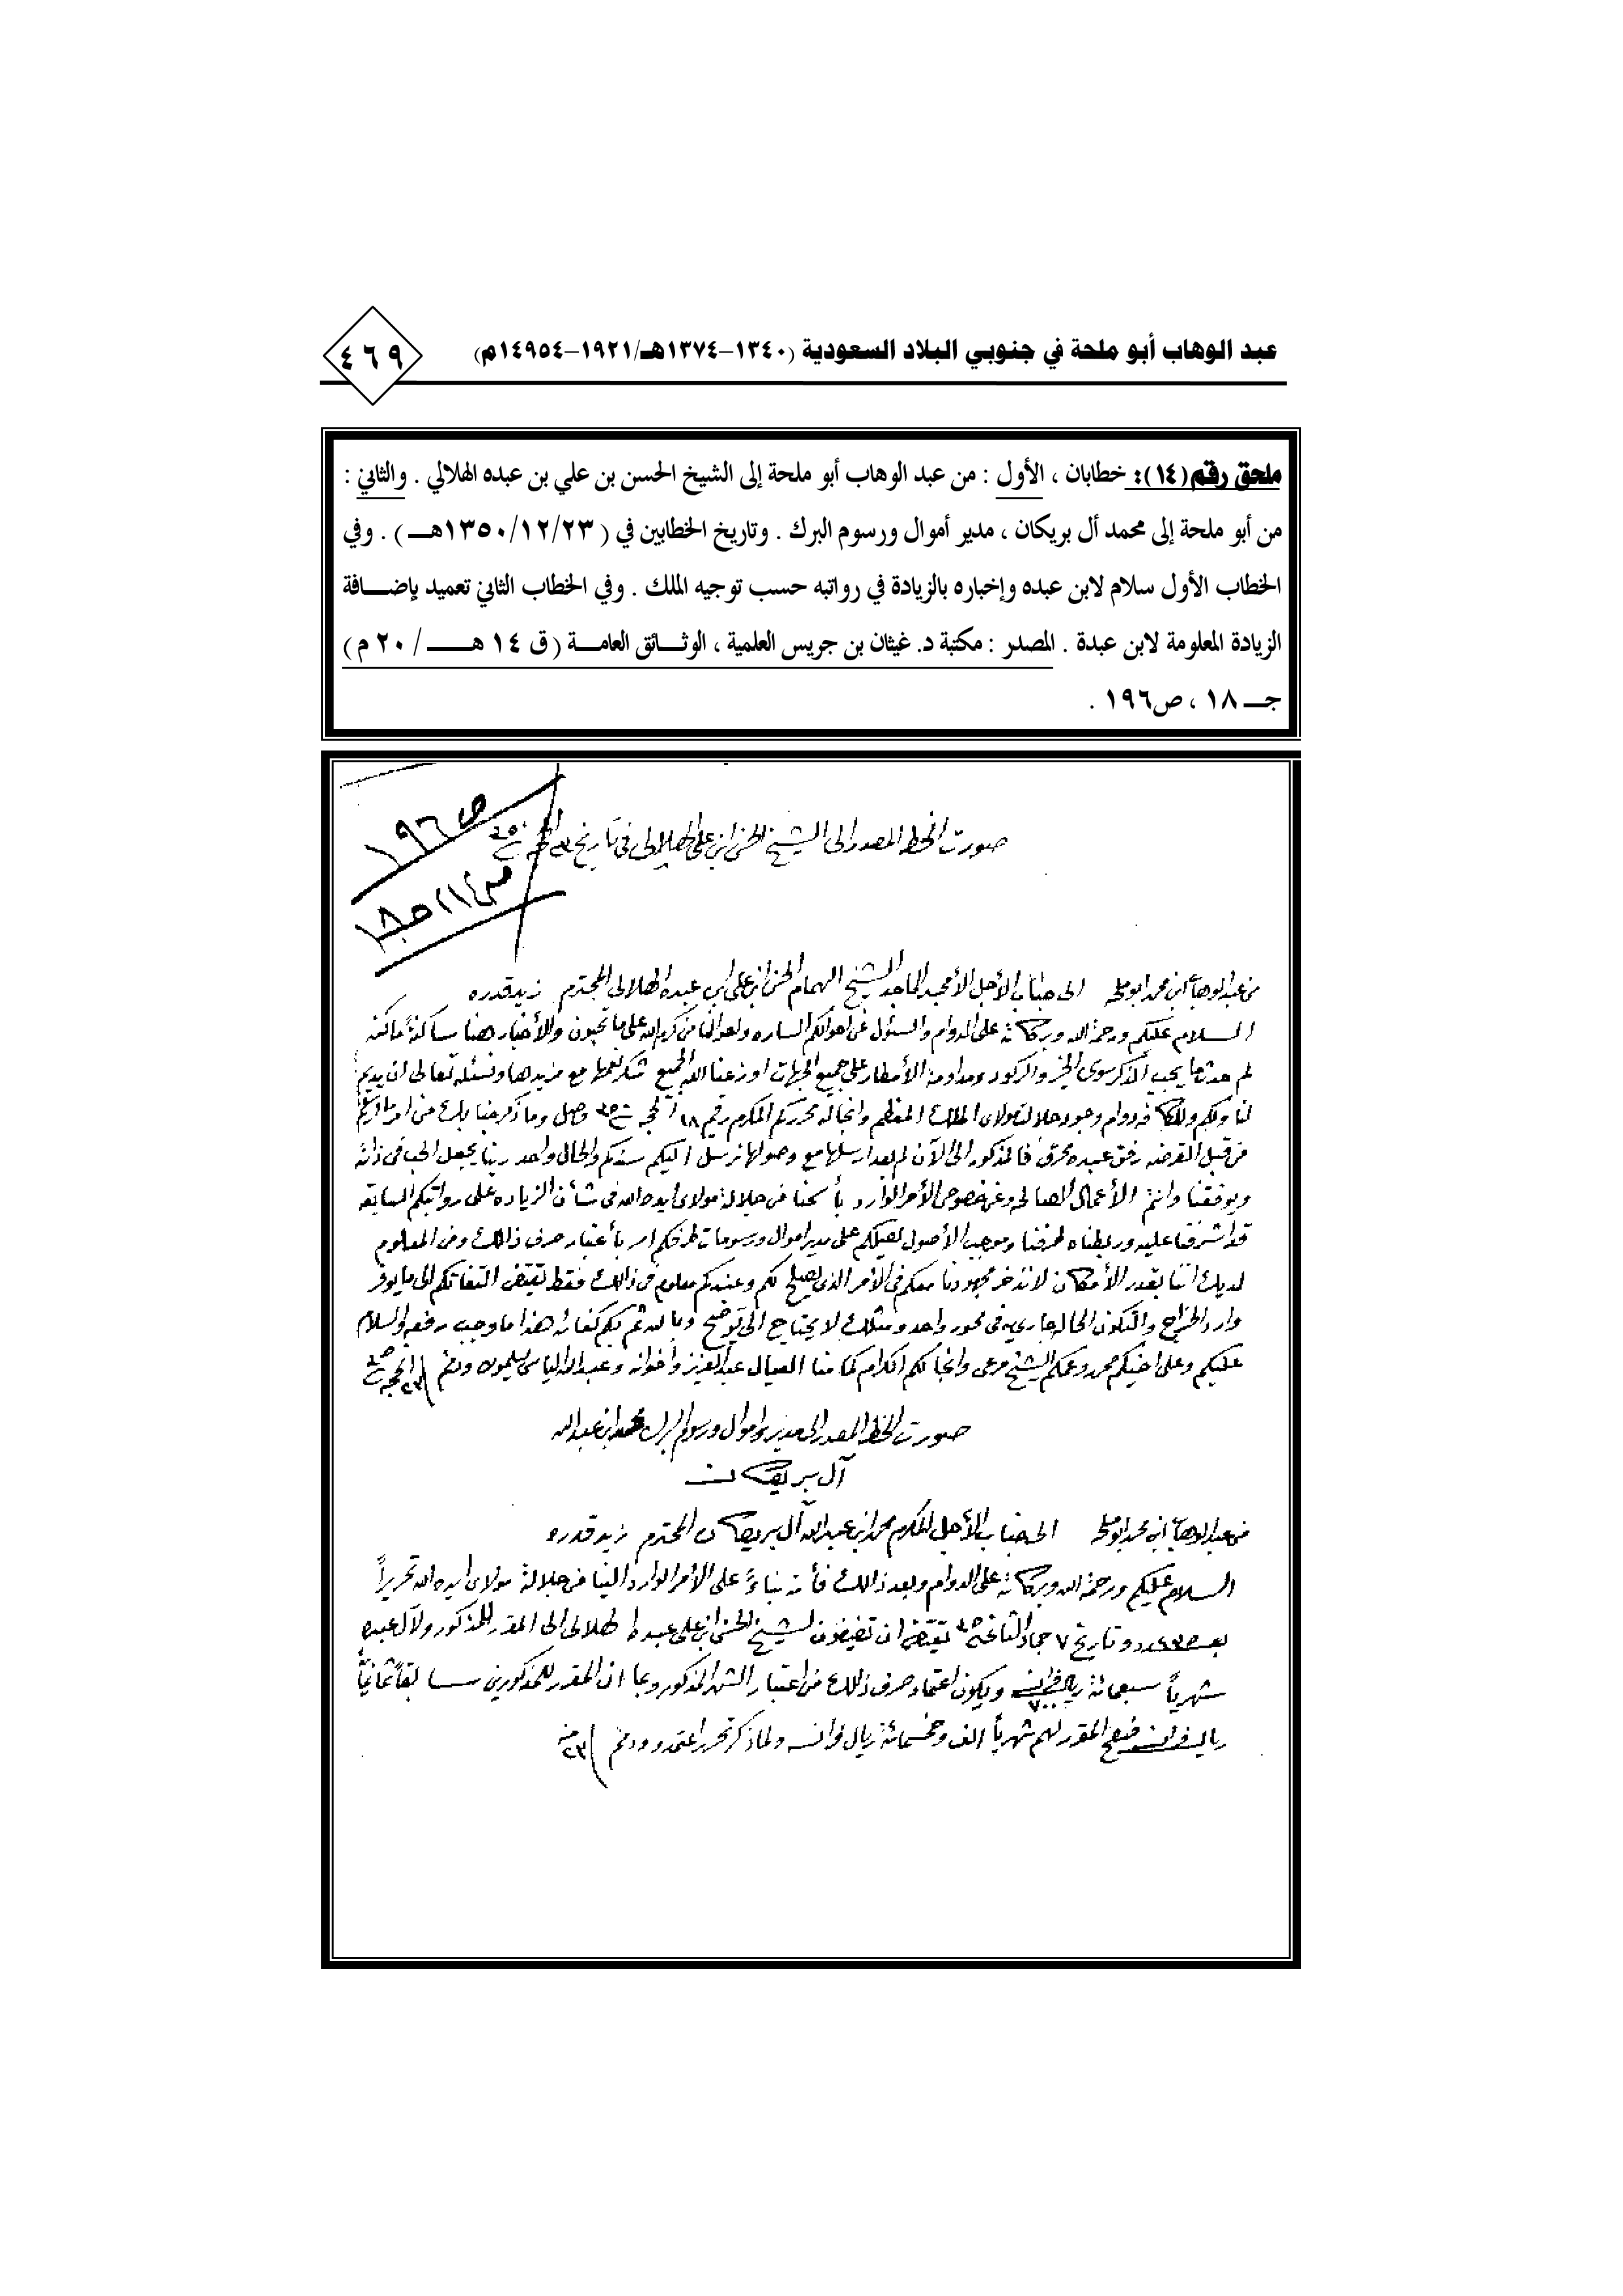 عبد الوهاب أبو ملحة في جنوبي البلاد السعودية (١٣٤٠-١٣٧٤هـ/١٩٢١-١٤٩٥٤م)
٤٦٩
ملحق رقم (١٤): خطابان ، الأول : من عبد الوهاب أبو ملحة إلى الشيخ الحسن بن علي بن عبده الهلالي . والثاني :
من أبو ملحة إلى محمد أل بريكان ، مدير أموال ورسوم البرك . وتاريخ الخطابين في ( ١٣٥٠/١٢/٢٣هـ ) . وفي
الخطاب الأول سلام لابن عبده وإخباره بالزيادة في رواتبه حسب توجيه الملك . وفي الخطاب الثاني تعميد بإضافة
الزيادة المعلومة لابن عبدة . المصدر : مكتبة د. غيثان بن جريس العلمية ، الوثائق العامة ( ق ١٤ هـ / ٢٠ م )
جـ ١٨ ، ص١٩٦ .
ص ١٩٦
صورت الخط المصدر الى الشيخ الحسن ابن علي الهلالي في تاريخ
من عبد الوهاب ابن محمد ابو ملحه الى جناب الأجل الأمجد الماجد الشيخ الهمام الحسن ابن علي ابن عبده الهلالي المحترم زيد قدره
السلام عليكم ورحمة الله وبركاته على الدوام والسئول عن احوالكم الساره واحوالنا من كرم الله على ما تحبون والأخبار هنا ساكنة
لم حدث ما يجب الذكر سوى الخير والركود ومداومة الأمطار على جميع الجهات اوزعنا الله الجميع شكر نعمها مع مزيدها ونسئله تعالى ان يديم
لنا ولكم وللكافه دوام وجود جلالة مولاي الملك المعظم وانجاله محرركم المكرم رقم ١٨ الحجه وصل وما ذكر جنابك
من قبل القرضه رفق عبده محرق فالمذكور الى الآن لم بعد ارسلها مع وصولها نرسل اليكم سندكم والحال واحد ربنا يجعل الحب في ذاته
ويوفقنا وانتم الأعمال الصالحه وعن خصوص الأمر الوارد بأسمنا من جلالة مولاي ايده الله في شأن الزياده على رواتبكم السابقه
قد اشرفنا عليه وربطناه لطرفنا وموجب الأصول لصلكم على مدير اموال ورسومات طرفكم امر بأعتبار صرف ذالك ومن المعلوم
لديك اننا بقدر الأمكان لا ندخر مجهودنا معكم في الأمر الذي يصلح لكم وعندكم معلوم في ذالك فقط تقتضي التفاتكم الى ما يوفر
وارد الخراج والتكون الحاله جاريه في محور واحد ومثلك لا يحتاج الى توضيح وبالله ثم بكم كفائه هذا ما وجب رفعه والسلام
عليكم وعلى اخيكم محمد وعمكم الشيخ مرعي وانجالكم الكرام كما منا العيال عبد العزيز واخوانه وعبد الله الياس يسلمون ودمتم ٢٣ الحجه
صورت الخط المصدر الى مدير اموال ورسوم البرك محمد ابن عبد الله
آل بريكان
من عبد الوهاب ابن محمد ابو ملحه الى جناب الأجل المكرم محمد ابن عبد الله آل بريكان المحترم زيد قدره
السلام عليكم ورحمة الله وبركاته على الدوام وبعد ذالك فأنه بناءً على الأمر الوارد الينا من جلالة مولاي ايده الله تحريراً
بعدد وتاريخ ٧ جماد الثاني تقتضي ان تضيفون لشيخ الحسن ابن علي عبده الهلالي الى المقرر للمذكور ولآل عبده
شهرياً سبعمائة ريال فرانسه ويكون اعتماد صرف ذالك من اعتبار الشهر المذكور وبما ان المقرر للمذكورين سابقاً ثمانمائة
ريال فرانسه فيصح المقرر لهم شهرياً الف وخمسمائة ريال فرانسه ولما ذكر تحرر اعتمدوه ودمتم ٢٣ منه